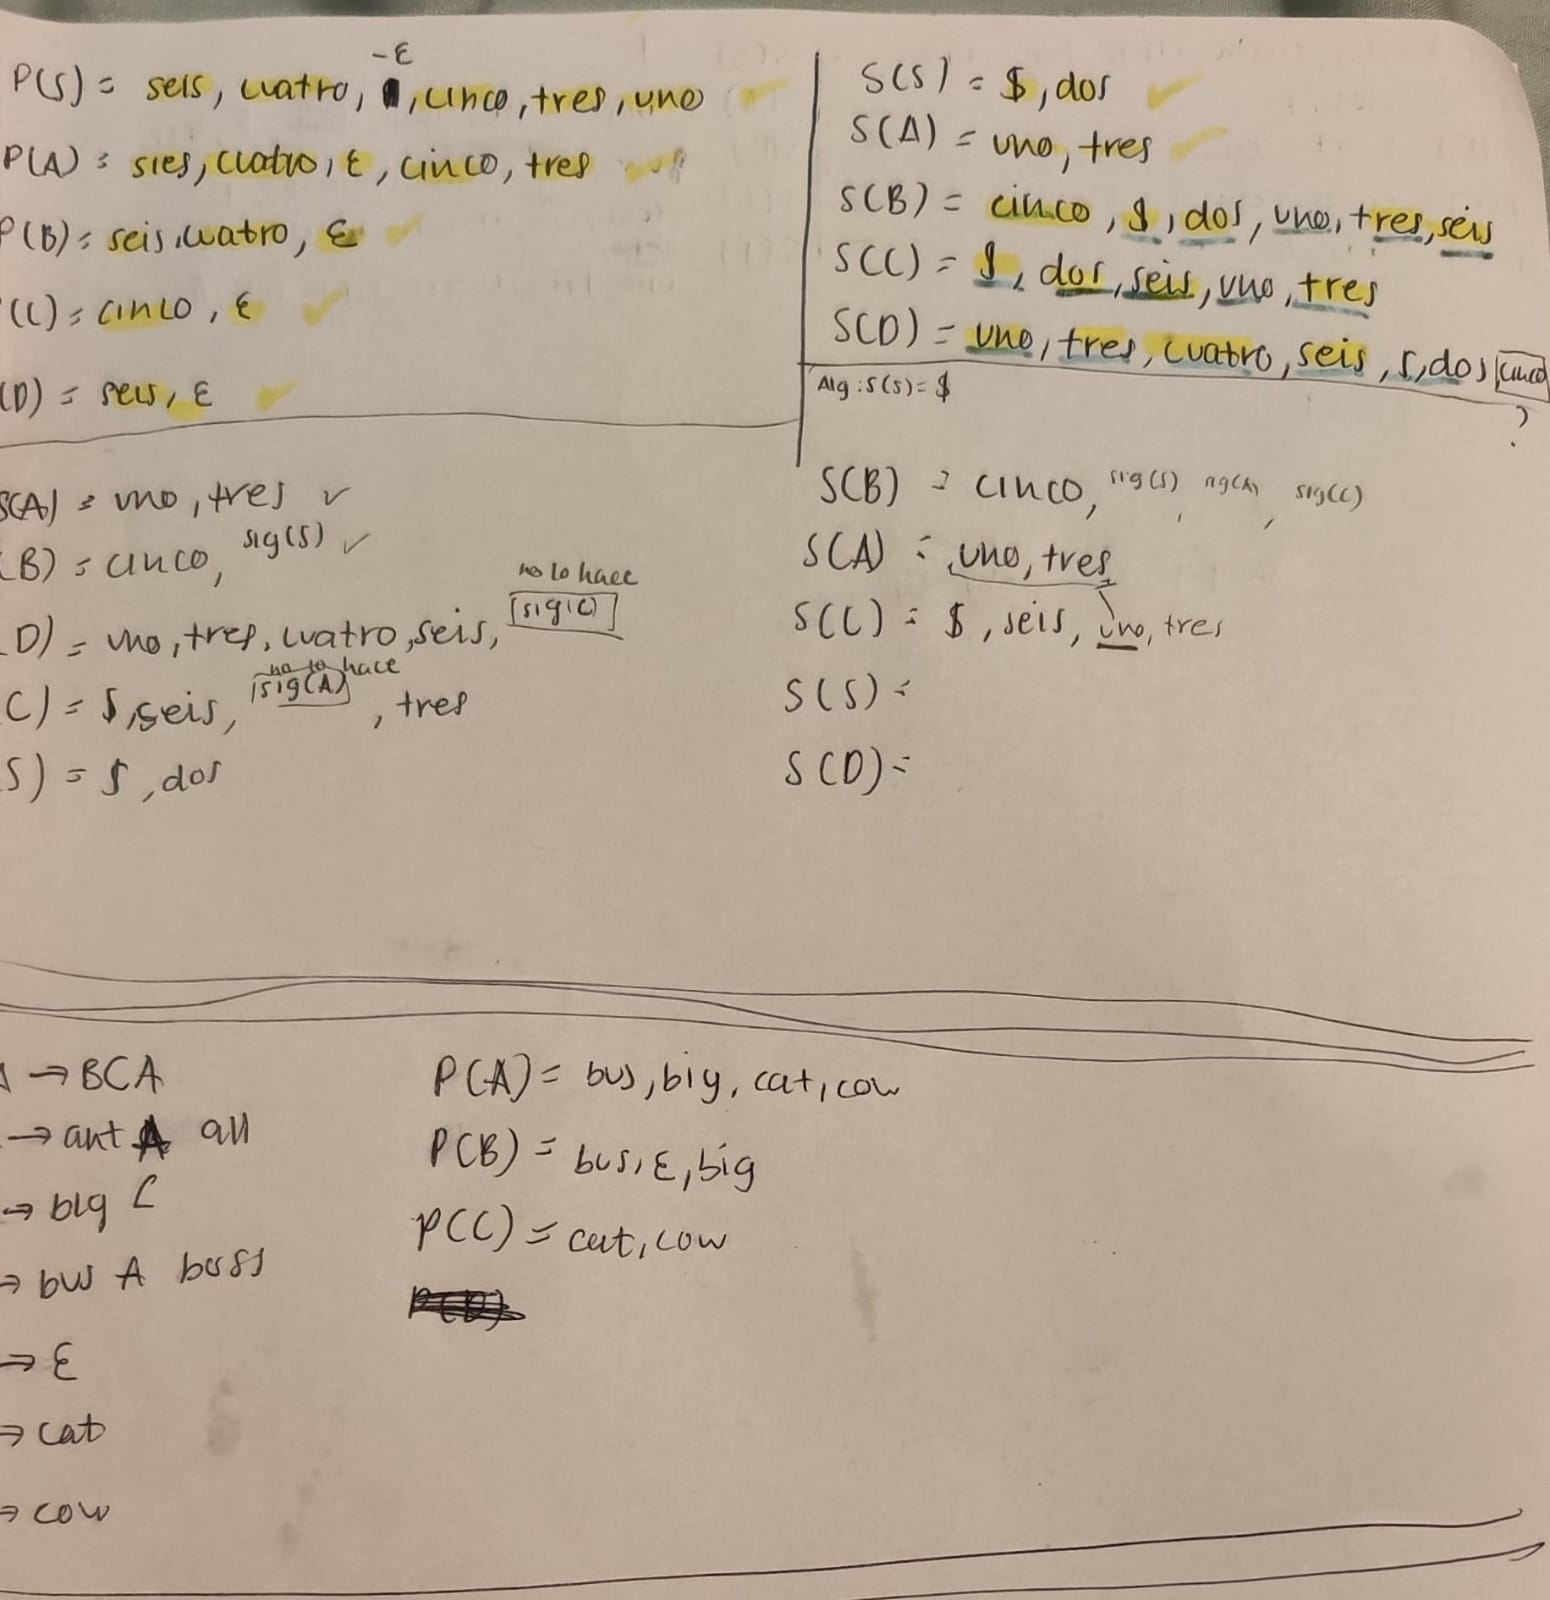 -ε
P(S) = seis, cuatro, , cinco, tres, uno
P(A) = sies, cuatro, ε, cinco, tres
P(B) = seis, cuatro, ε
(C) = cinco, ε
(D) = seis, ε
S(S) = $, dos
S(A) = uno, tres
S(B) = cinco, $, dos, uno, tres, seis
S(C) = $, dos, seis, uno, tres
S(D) = uno, tres, cuatro, seis, $, dos cinco
?
Alg: S(S) = $
S(A) = uno, tres ✓
B) = cinco, sig(S) ✓
no lo hace
D) = uno, tres, cuatro, seis, sig(C)
no lo hace
C) = $, seis, sig(A), tres
S) = $, dos
S(B) = cinco, sig(S), sig(A), sig(C)
S(A) = uno, tres
S(C) = $, seis, uno, tres
S(S) =
S(D) =
A → BCA
→ ant all
→ big C
→ bus A boss
→ ε
→ cat
→ cow
P(A) = bus, big, cat, cow
P(B) = bus, ε, big
P(C) = cat, cow